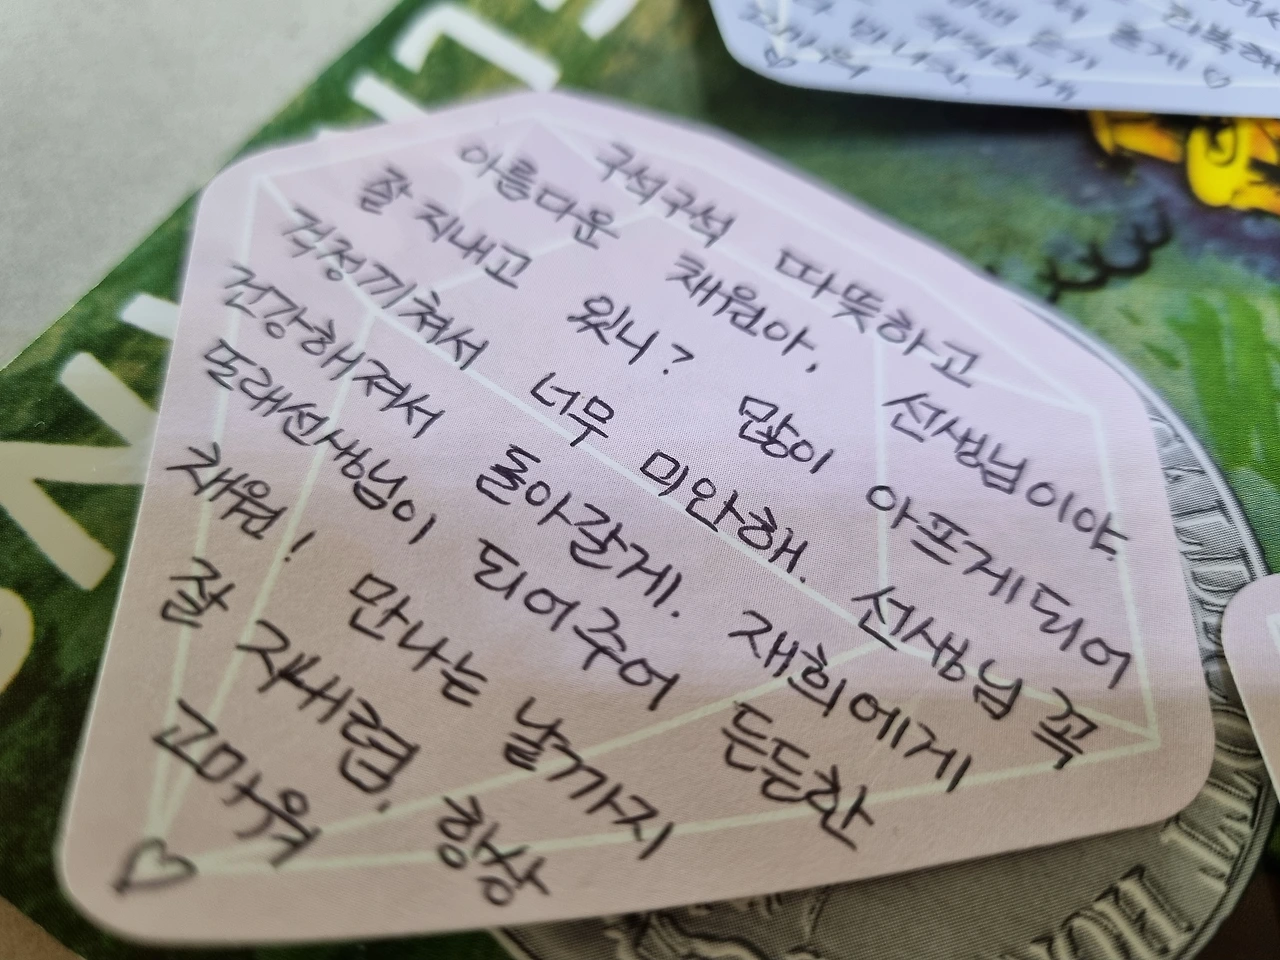 구석구석 따뜻하고
아름다운 채원아, 선생님이야.
잘 지내고 있니? 많이 아프게되어
걱정끼쳐서 너무 미안해. 선생님 꼭
건강해져서 돌아갈게. 재희에게
또래선생님이 되어주어 든든한
채원! 만나는 날까지
잘 지내렴. 항상
고마워